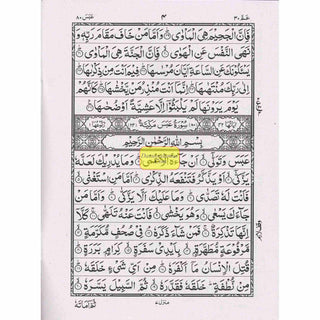 عَبَسَ ٨٠ ٤ عَمَّ ٣٠
فَاِنَّ الْجَحِيْمَ هِيَ الْمَاْوٰى وَاَمَّا مَنْ خَافَ مَقَامَ رَبِّهٖ وَ
نَهَى النَّفْسَ عَنِ الْهَوٰى فَاِنَّ الْجَنَّةَ هِيَ الْمَاْوٰى
يَسْـَٔلُوْنَكَ عَنِ السَّاعَةِ اَيَّانَ مُرْسٰىهَا فِيْمَ اَنْتَ مِنْ ذِكْرٰىهَا
اِلٰى رَبِّكَ مُنْتَهٰىهَا اِنَّمَا اَنْتَ مُنْذِرُ مَنْ يَّخْشٰىهَا كَاَنَّهُمْ
يَوْمَ يَرَوْنَهَا لَمْ يَلْبَثُوْا اِلَّا عَشِيَّةً اَوْ ضُحٰىهَا
سُوْرَةُ عَبَسَ مَكِّيَّةٌ
بِسْمِ اللّٰهِ الرَّحْمٰنِ الرَّحِيْمِ
عَبَسَ وَتَوَلّٰى اَنْ جَآءَهُ الْاَعْمٰى وَمَا يُدْرِيْكَ لَعَلَّهٗ
يَزَّكّٰى اَوْ يَذَّكَّرُ فَتَنْفَعَهُ الذِّكْرٰى اَمَّا مَنِ اسْتَغْنٰى
فَاَنْتَ لَهٗ تَصَدّٰى وَمَا عَلَيْكَ اَلَّا يَزَّكّٰى وَاَمَّا مَنْ
جَآءَكَ يَسْعٰى وَهُوَ يَخْشٰى فَاَنْتَ عَنْهُ تَلَهّٰى كَلَّآ
اِنَّهَا تَذْكِرَةٌ فَمَنْ شَآءَ ذَكَرَهٗ فِيْ صُحُفٍ مُّكَرَّمَةٍ
مَّرْفُوْعَةٍ مُّطَهَّرَةٍ بِاَيْدِيْ سَفَرَةٍ كِرَامٍ بَرَرَةٍ
قُتِلَ الْاِنْسَانُ مَآ اَكْفَرَهٗ مِنْ اَيِّ شَيْءٍ خَلَقَهٗ
مِنْ نُّطْفَةٍ خَلَقَهٗ فَقَدَّرَهٗ ثُمَّ السَّبِيْلَ يَسَّرَهٗ
ثُمَّ اَمَاتَهٗ